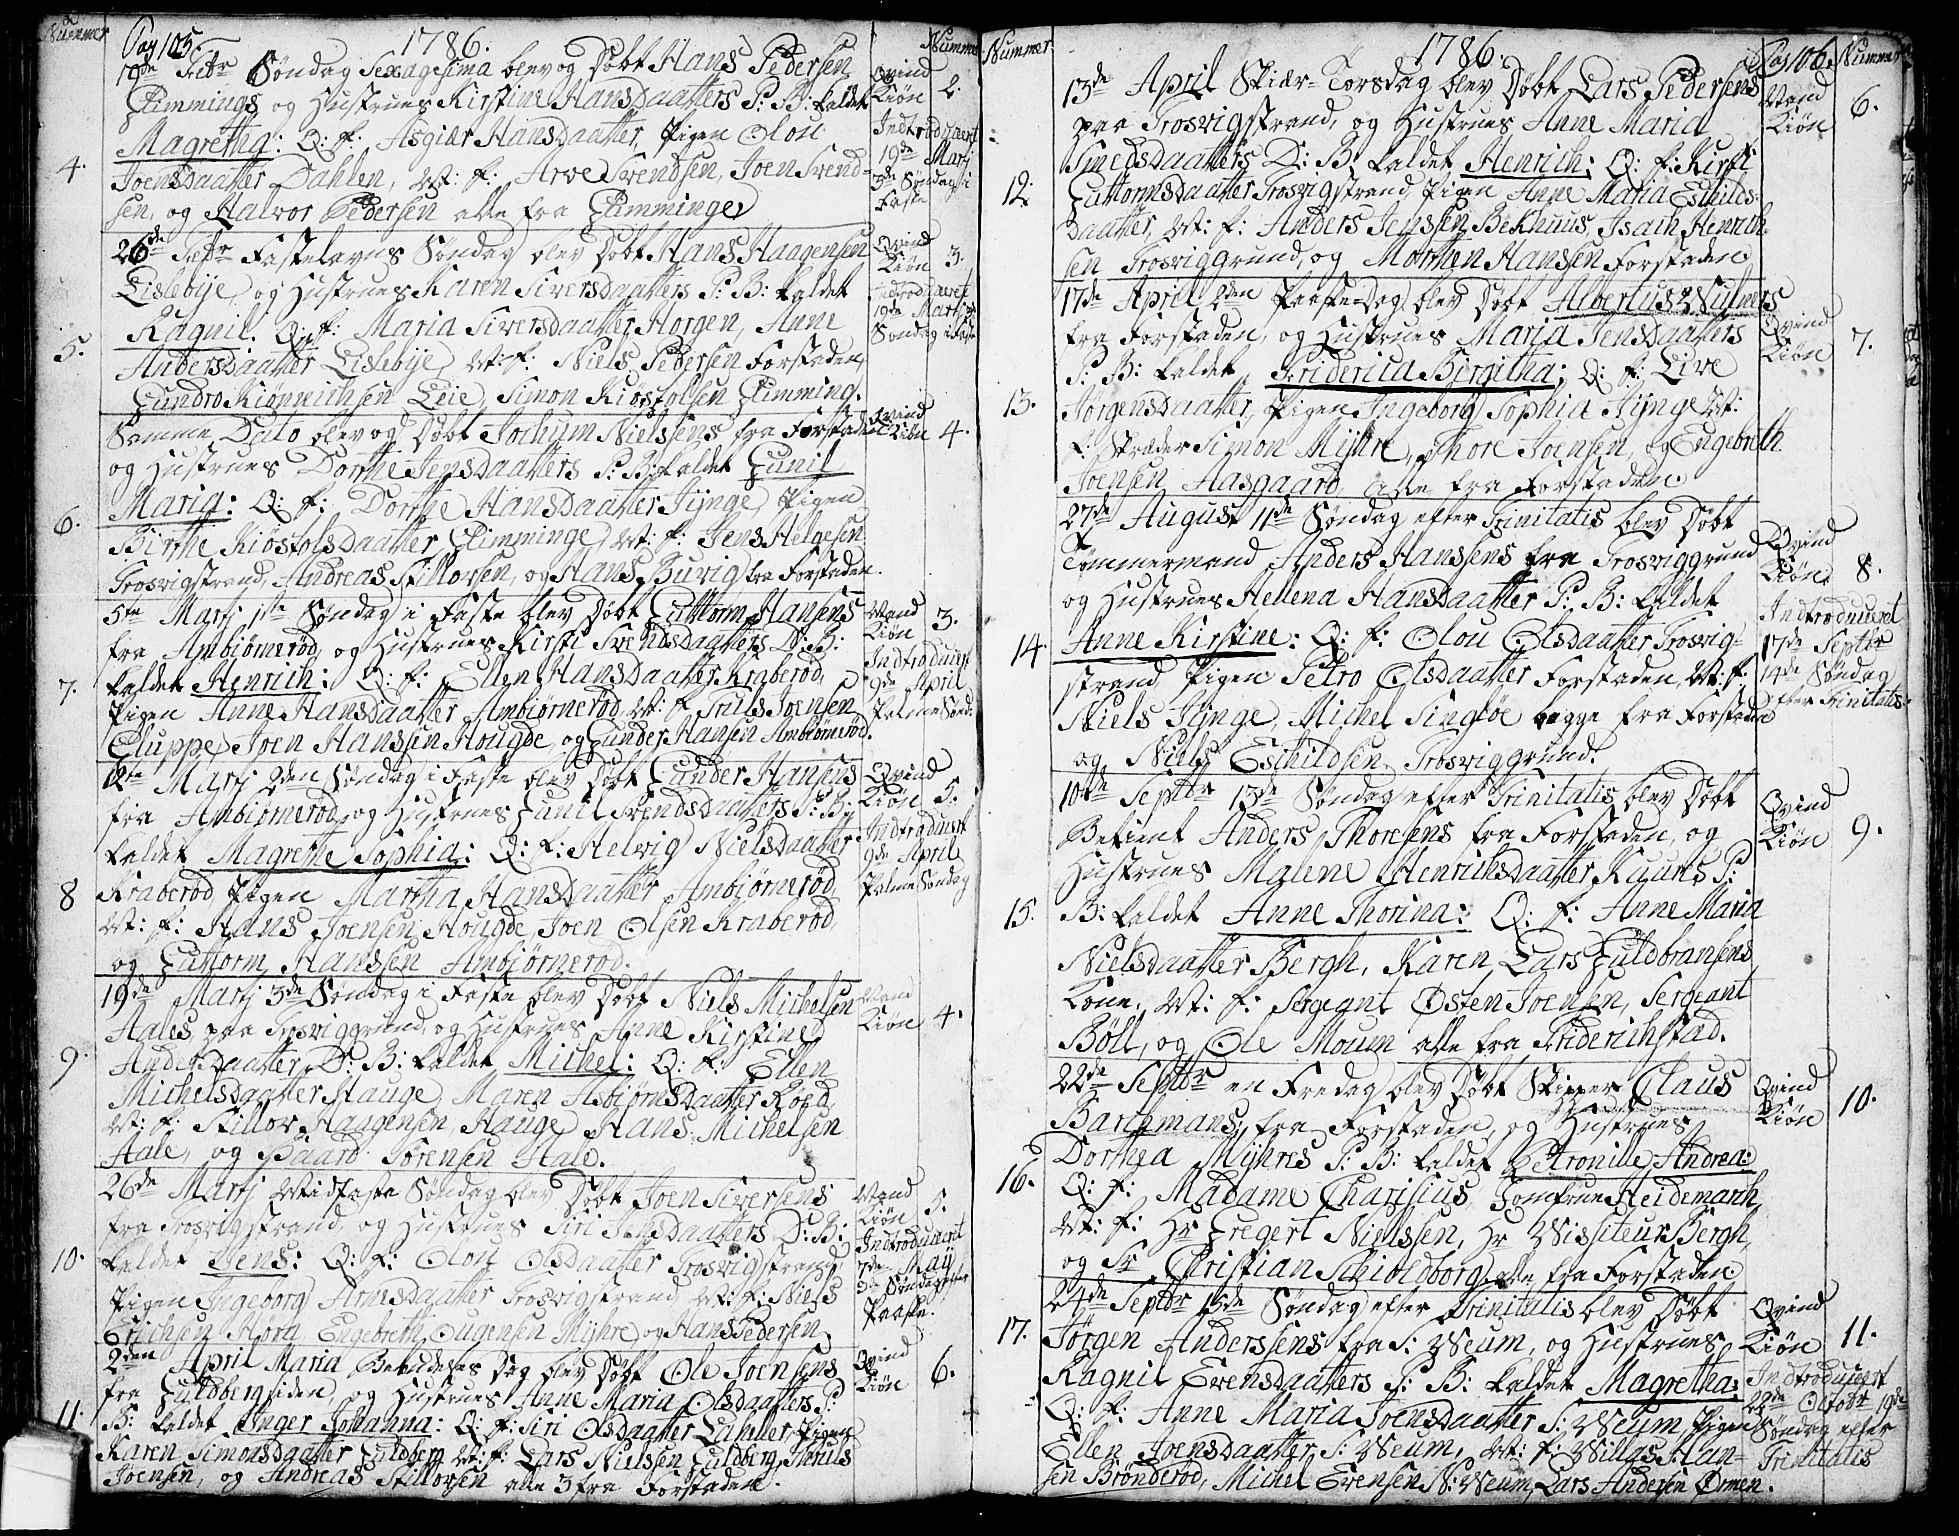 Nummer
Pag 105.
1786.
Nummer
19de Febr Søndag Sexagesima blev og Døbt Hans Pedersen
Glimmings og Hustrues Kirstine Hansdaatters P: B: kaldet
Magretha: Q: f: Asgiær Hansdaatter, Pigen Olou
4.
Joensdaatter Dahlen, M: f: Arve Svendsen, Joen Svend-
sen, og Halvor Pedersen alle fra Glimminge
Qvind
Kiøn
2.
Introducert
19de Martj
3de Søndag i
Faste
26de Febr Fastelavns Søndag blev Døbt Hans Haagensen
Lislebije, og Hustrues Karen Siversdaatters P: B: kaldet
Ragnil. Q: f: Maria Siversdaatter Horgen, Anne
5.
Andersdaatter Lislebije, M: f: Niels Pedersen Forstaden,
Gundro Kiønnichsen Leie, Simon Kiøstolsen Glimming.
Qvind
Kiøn
3.
Introduceret
19de Martj 3
Søndag i Faste
Samme Dato blev og Døbt Jochum Nielsens fra Forstaden
og Hustrues Dorthe Jensdaatters P: B: kaldet Gunil
Maria: Q: f: Dorthe Hansdaatter Jynge, Pigen
6.
Birthe Kiøstolsdaatter Glimminge, M: f: Jens Helgesen
Trosvigstrand, Andreas Stillorsen, og Hans Buvig fra Forstaden.
Qvind
Kiøn
4.
5te Martj 1ste Søndag i Faste blev Døbt Guttorm Hansens
fra Ambiørnerød, og Hustrues Kirsti Svendsdaatters D: B:
7.
kaldet Henrich: Q: f: Ellen Hansdaatter Kraberød,
Pigen Anne Hansdaatter Ambiørnerød, M: f: Truls Joensen
Gluppe, Joen Hanssen Hougde, og Gunder Hansen Ambiørnerød.
Mand
Kiøn
3.
Introducert
9de April
Palme Sønd.
12te Martj 2den Søndag i Faste blev Døbt Gunder Hansens
fra Ambiørnerød, og Hustrues Gunil Svendsdaatters P: B:
kaldet Magrethe Sophia: Q: f: Helvig Nielsdaatter
8
Kraberød, Pigen Martha Hansdaatter Ambiørnerød,
M: f: Hans Joensen Hougde, Joen Olsen Kraberød,
og Guttorm Hanssen Ambiørnerød.
Qvind
Kiøn
5.
Introducert
9de April
Palme Søndag
19de Martj 3de Søndag i Faste blev Døbt Niels Michelsen
Aales paa Trosviggrund, og Hustrues Anne Kirstine
9.
Andersdaatter D: B: kaldet Michel: Q: f: Ellen
Michelsdaatter Hauge, Maren Asbiørnsdaatter Roed,
M: f: Stillor Haagensen, Hauge, Hans Michelsen
Aale, og Baard Sørensen Aale.
Mand
Kiøn
4.
26de Martj Midfaste Søndag blev Døbt Joen Siversens
fra Trosvigstrand, og Hustrues Siri Jensdaatters D: B:
10.
kaldet Jens: Q: f: Olou Olsdaatter Trosvigstrand,
Pigen Ingeborg Arnesdaatter Trosvigstrand M: f: Niels
Erichsen Hora, Engebreth Ougensen Myhre, og Hans Pedersen
Mand
Kiøn
5.
Introducerit
7de May
3de Søndag efter
Paaske.
2den April Maria Bebudelses Dag blev Døbt Ole Joensens
fra Guldbergsiden, og Hustrues Anne Maria Olsdaatters P:
11.
B: kaldet Inger Johanna: Q: f: Siri Olsdaatter Laheller, Pigen
Karen Simonsdaatter Guldberg, M: f: Lars Nielssen Guldberg, Thruls
Joensen, og Andreas Stillorsen alle 3 fra Forstaden.
Qvind
Kiøn
6.
Nummer
1786.
Pag 106.
Nummer
13de April Skiær-Torsdag blev Døbt Lars Pedersens
paa Trosvigstrand, og Hustrues Anne Maria
Smedsdaatters D: B: kaldet Henrich: Q: f: Kirsti
12.
Guttormsdaatter Trosvigstrand, Pigen Anne Maria Eskilds-
daatter, M: f: Anders Jenssen Bekhuus, Isach Henrich-
sen Trosviggrund, og Morthen Hanssen Forstaden
Mand
Kiøn
6.
17de April 2den Paaske-Dag blev Døbt Albertus Wulners
fra Forstaden, og Hustrues Maria Jensdaatters
P: B: kaldet Friderica Birgitha: Q: f: Live
13.
Jørgensdaatter, Pigen Ingeborg Sophia Jynge M:
f: Skræder Simon Myhre, Thore Joensen, og Engebreth
Joensen Aasgaard alle fra Forstaden.
Qvind
Kiøn
7.
27de August 11de Søndag efter Trinitatis blev Døbt
Tømmermand Anders Hanssens fra Trosviggrund
og Hustrues Hellena Hansdaatter P: B: kaldet
14.
Anne Kirstine: Q: f: Olou Olsdaatter Trosvig-
strand Pigen Petro Olsdaatter Forstaden, M: f:
Niels Jynge, Michel Singløe begge fra Forstaden
og Niels Eschildsen Trosviggrund.
Qvind
Kiøn.
8.
Introducerit
17de Septbr
14de Søndag
efter Trinitatis
10de Septbr 13de Søndag efter Trinitatis blev Døbt
Betient Anders Thoresens fra Forstaden, og
Hustrues Malene Henrichsdaatter Kaures P:
15.
B: kaldet Anne Thorina: Q: f: Anne Maria
Nielsdaatter Bergh, Karen Lars Guldbransens
Kone, M: f: Sergeant Østen Joensen, Sergeant
Bøll, og Ole Moum alle fra Friderichstad.
Qvind
Kiøn
9.
22de Septbr en Fredag blev Døbt Skipper Claus
Barchmans, fra Forstaden, og Hustrues
Dorthea Myhres P: B: kaldet Petronille Andrea:
16.
Q: f: Madame Charisius, Jomfrue Heidemarch,
M: f: Hr Gregert Nielssen, Hr Vissiteur Bergh,
og Sr Christian Schioldborg alle fra Forstaden.
Qvind
Kiøn
10.
24de Septbr 15de Søndag efter Trinitatis blev Døbt
17.
Jørgen Anderssens fra S: Weum, og Hustrues
Ragnil Evensdaatters P: B: kaldet Magretha:
Q: f: Anne Maria Joensdaatter S: Weum Pigen
Ellen Joensdaatter S: Weum, M: f: Willas Han-
sen Brønderød, Michel Evensen N: Weum, Lars Andersen Ørmen.
Qvind
Kiøn
11.
Introducert
22de Octobr 19de
Søndag efter
Trinitatis